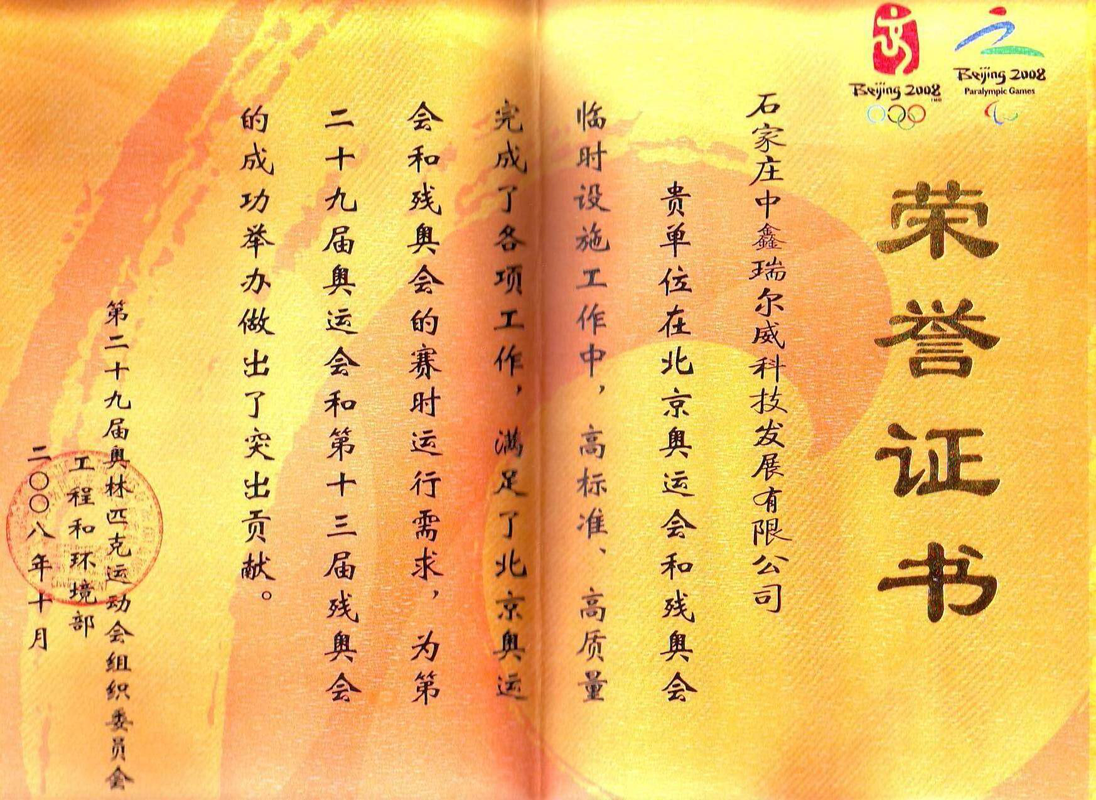 Beijing 2008
Beijing 2008
Paralympic Games
荣誉证书
石家庄中鑫瑞尔威科技发展有限公司
贵单位在北京奥运会和残奥会
临时设施工作中，高标准、高质量
完成了各项工作，满足了北京奥运
会和残奥会的赛时运行需求，为第
二十九届奥运会和第十三届残奥会
的成功举办做出了突出贡献。
第二十九届奥林匹克运动会组织委员会
工程和环境部
二〇〇八年十月